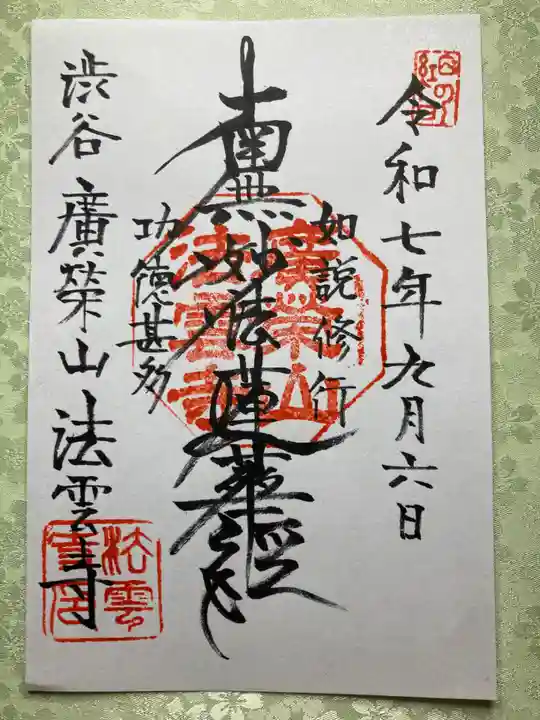 令和七年九月六日
如説修行
南無妙法蓮華経
功徳甚多
渋谷 廣榮山 法雲寺
廣榮山
法雲寺
法雲